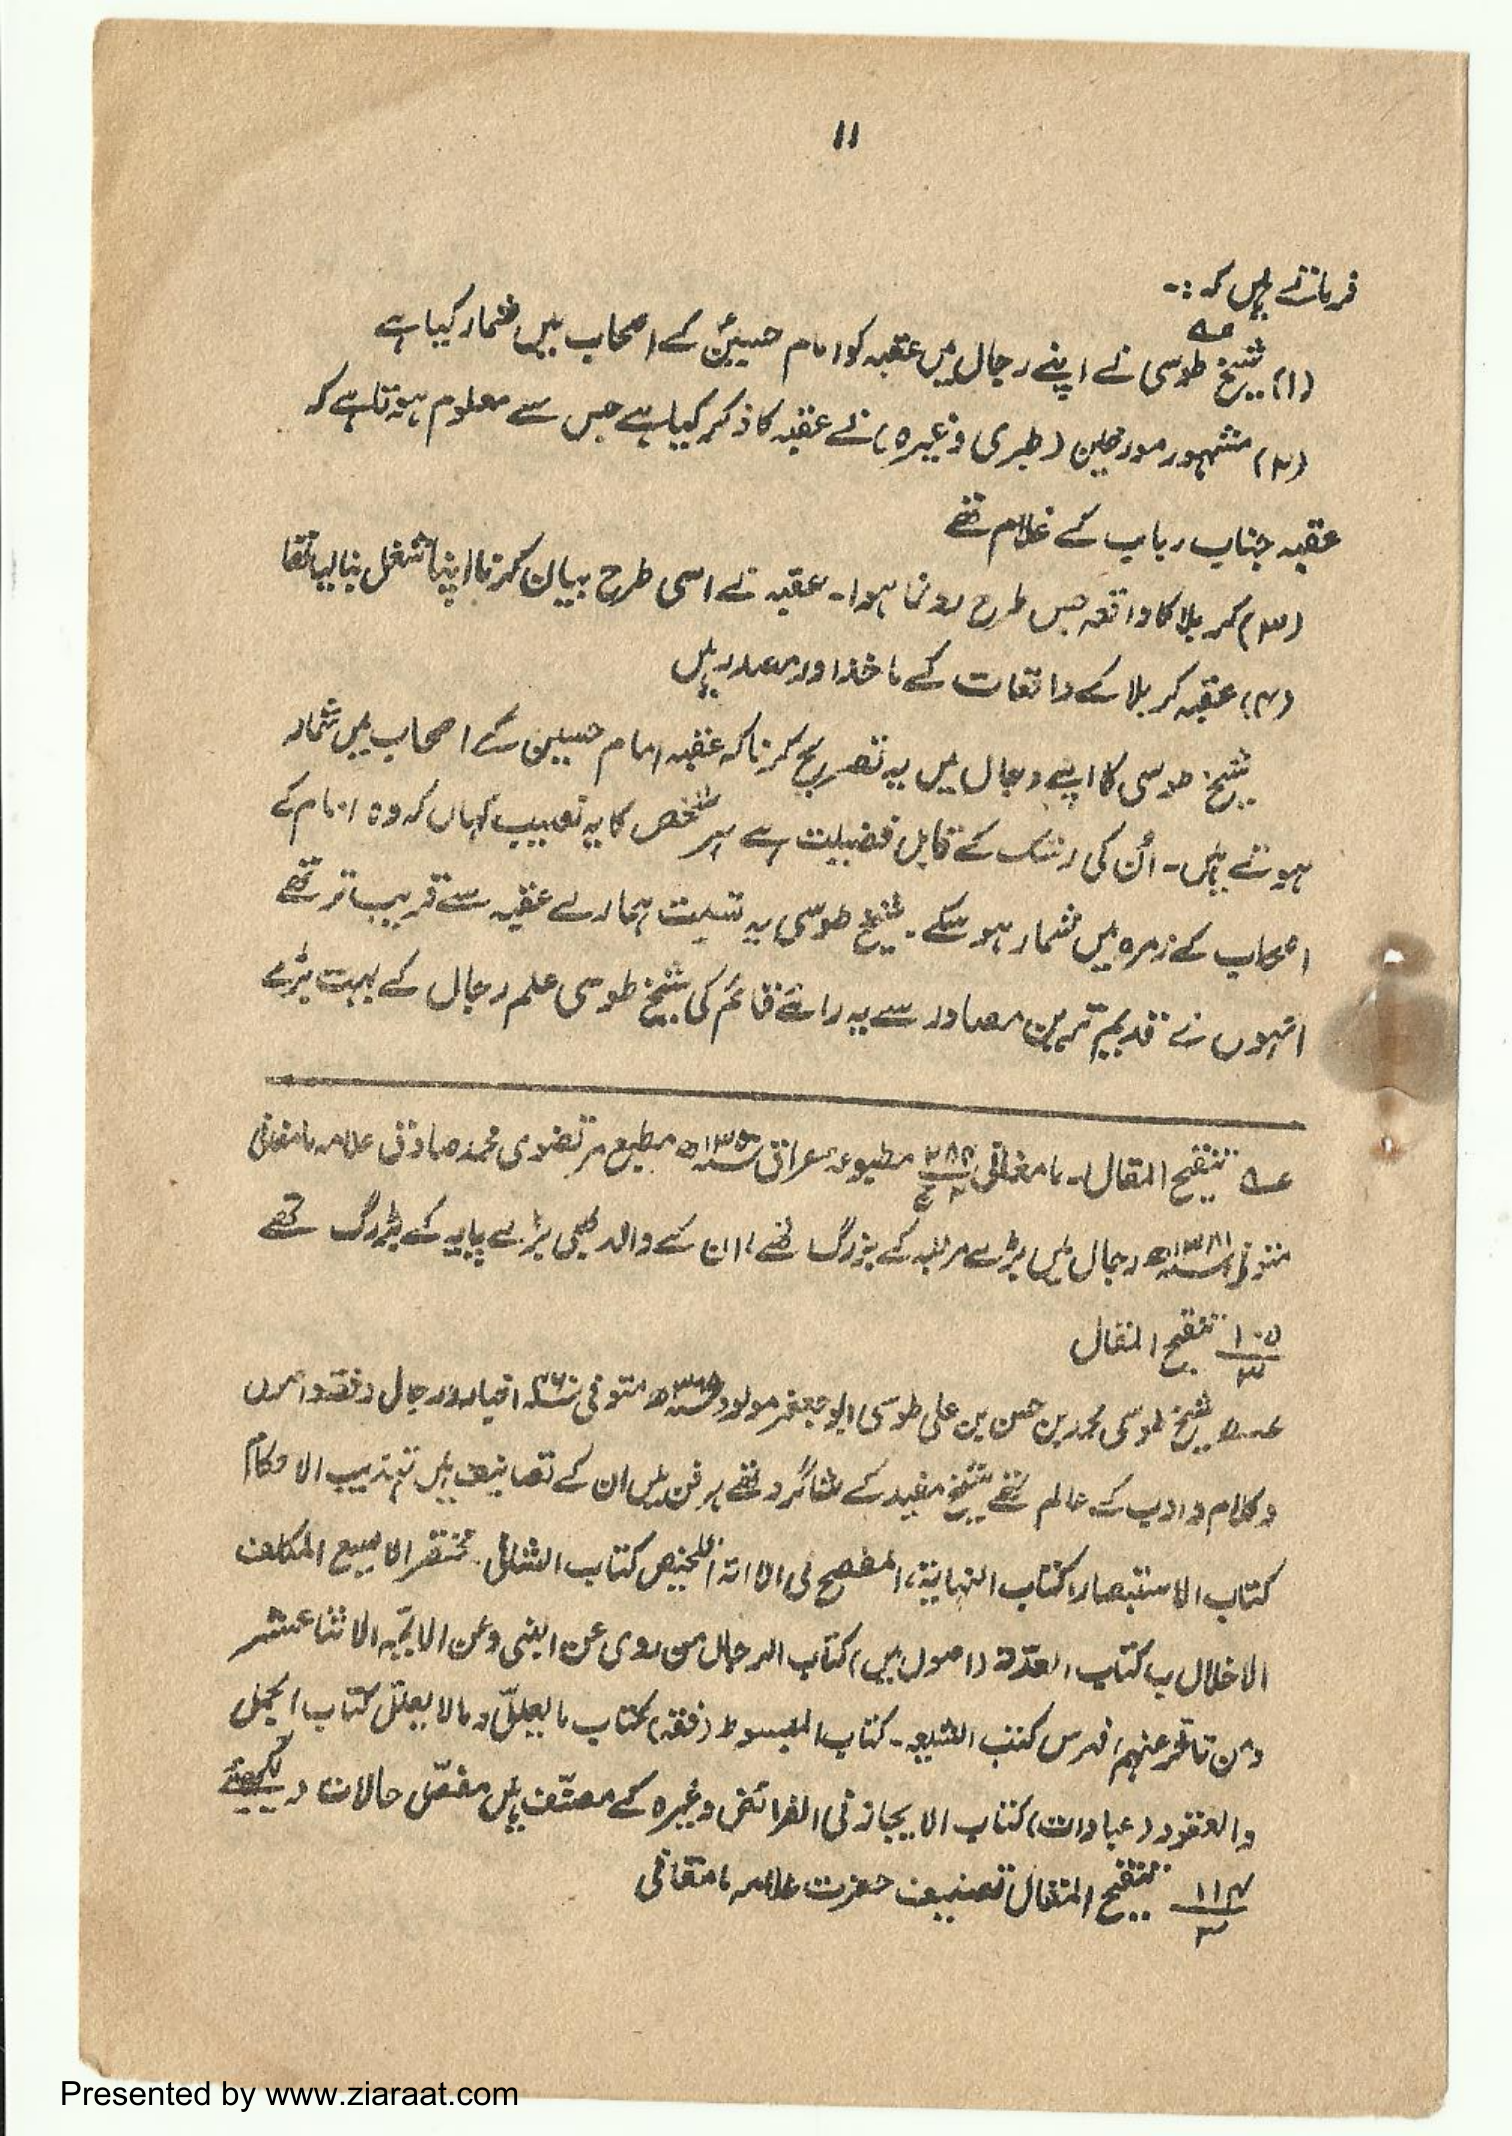 ۱۱
فرماتے ہیں کہ :۔
(۱) شیخ طوسی نے اپنے رجال میں عقبہ کو امام حسینؑ کے اصحاب میں شمار کیا ہے
(۲) مشہور مورخین (طبری وغیرہ) نے عقبہ کا ذکر کیا ہے جس سے معلوم ہوتا ہے کہ
عقبہ جناب رباب کے غلام تھے
(۳) کربلا کا واقعہ جس طرح رونما ہوا۔ عقبہ نے اسی طرح بیان کرنا اپنا شغل بنا لیا تھا
(۴) عقبہ کربلا کے واقعات کے ماخذ اور مصدر ہیں
شیخ طوسی کا اپنے رجال میں یہ تصریح کرنا کہ عقبہ امام حسین کے اصحاب میں شمار
ہوتے ہیں۔ اُن کی رشک کے قابل فضیلت ہے ہر شخص کا یہ نصیب کہاں کہ وہ امام کے
اصحاب کے زمرہ میں شمار ہو سکے۔ شیخ طوسی بہ نسبت ہمارے عقبہ سے قریب تر تھے
انہوں نے قدیم ترین مصادر سے یہ رائے قائم کی شیخ طوسی علم رجال کے بہت بڑے
عہ تنقیح المقال۔ مامغانی مطبوعہ عراق مطبع مرتضوی محمد صادق علامہ مامغانی
متوفی رجال میں بڑے مرتبہ کے بزرگ تھے، ان کے والد بھی بڑے پایہ کے بزرگ تھے
۱۰۵/۳ تنقیح المقال
شیخ طوسی محمد بن حسن بن علی طوسی ابو جعفر مولود متوفی ۴۶۰ اخبار و رجال و فقہ و اصول
و کلام و ادب کے عالم تھے شیخ مفید کے شاگرد تھے ہر فن میں ان کے تصانیف ہیں تہذیب الاحکام
کتاب الاستبصار، کتاب النہایۃ، المفصح فی الامامۃ تلخیص کتاب الشافی۔ مختصر المکلف
الاخلال بہ کتاب العدّۃ (اصول میں) کتاب الرجال من روی عن النبی وعن الائمہ الاثنا عشر
ومن تاخر عنہم فہرس کتب الشیعہ۔ کتاب المبسوط (فقہ) کتاب ما یعلل و مالا یعلل کتاب الجمل
والعقود (عبادات) کتاب الایجاز فی الفرائض وغیرہ کے مصنّف ہیں مفصّل حالات دیکھئے
۱۱۴/۳ تنقیح المقال تصنیف حضرت علامہ مامقانی
Presented by www.ziaraat.com